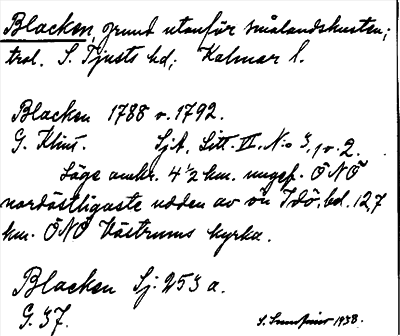 Blacken, grund utanför smålandskusten;
trol. S. Tjusts hd; Kalmar l.
Blacken 1788 o. 1792.
G. Klint. Sjk. Litt. II. N:o 3, 1 o. 2.
Läge omkr. 4 1/2 km. ungef. ÖNÖ
nordöstligaste udden av ön Idö, bd. 12,7
km. ÖNÖ Västrums kyrka.
Blacken Sj. 253 a.
G. 37.
1938.